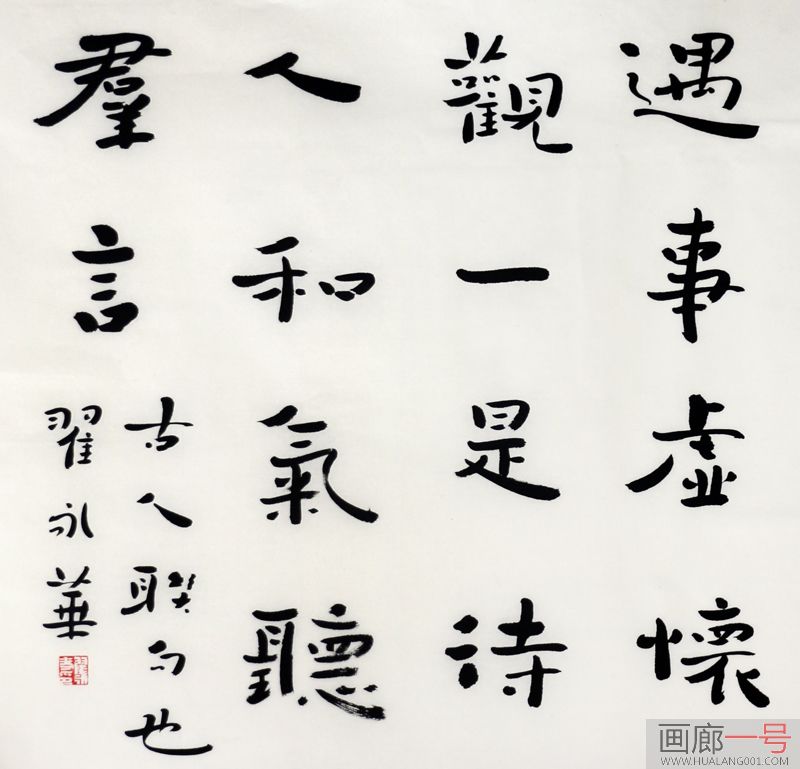 遇事虛懷
觀一是待
人和氣聽
羣言
古人聯句也
翟永華
画廊一号
WWW.HUALANG001.COM